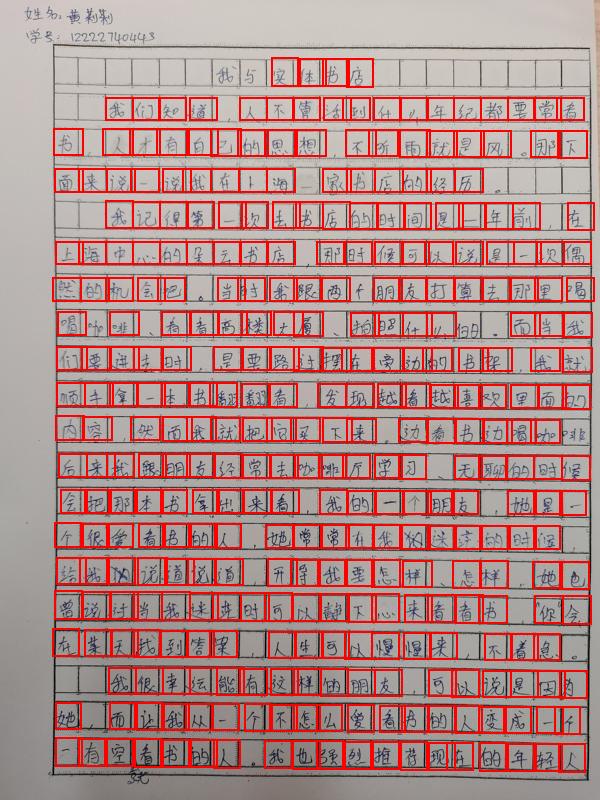 姓名：黄莉莉
学号：12222740443
我与实体书店
我们知道，人不管活到什么年纪都要常看
书，人才有自己的思想，不听雨就是风。那下
面来说一说我在上海一家书店的经历。
我记得第一次去书店的时间是一年前，在
上海中心的朵云书店，那时候可以说是一次偶
然的机会吧。当时我跟两个朋友打算去那里喝
喝咖啡、看看高楼大厦、拍照什么的。而当我
们要进去时，是要路过摆在旁边的书架，我就
顺手拿一本书翻翻看，发现越看越喜欢里面的
内容，然而我就把它买下来。边看书边喝咖啡
后来我跟朋友经常去咖啡厅学习、无聊的时候
会把那本书拿出来看，我的一个朋友，她是一
个很爱看书的人，她常常在我犹迷茫的时候
给我说道说道，开导我要怎样、怎样，她也
曾说过当我迷茫时可以静下心来看看书，“你会
在某天找到答案，人生可以慢慢来，不着急。
我很幸运能有这样的朋友，可以说是因为
她，而让我从一个不怎么爱看书的人变成一个
一有空就看书的人。我也强烈推荐现在的年轻人